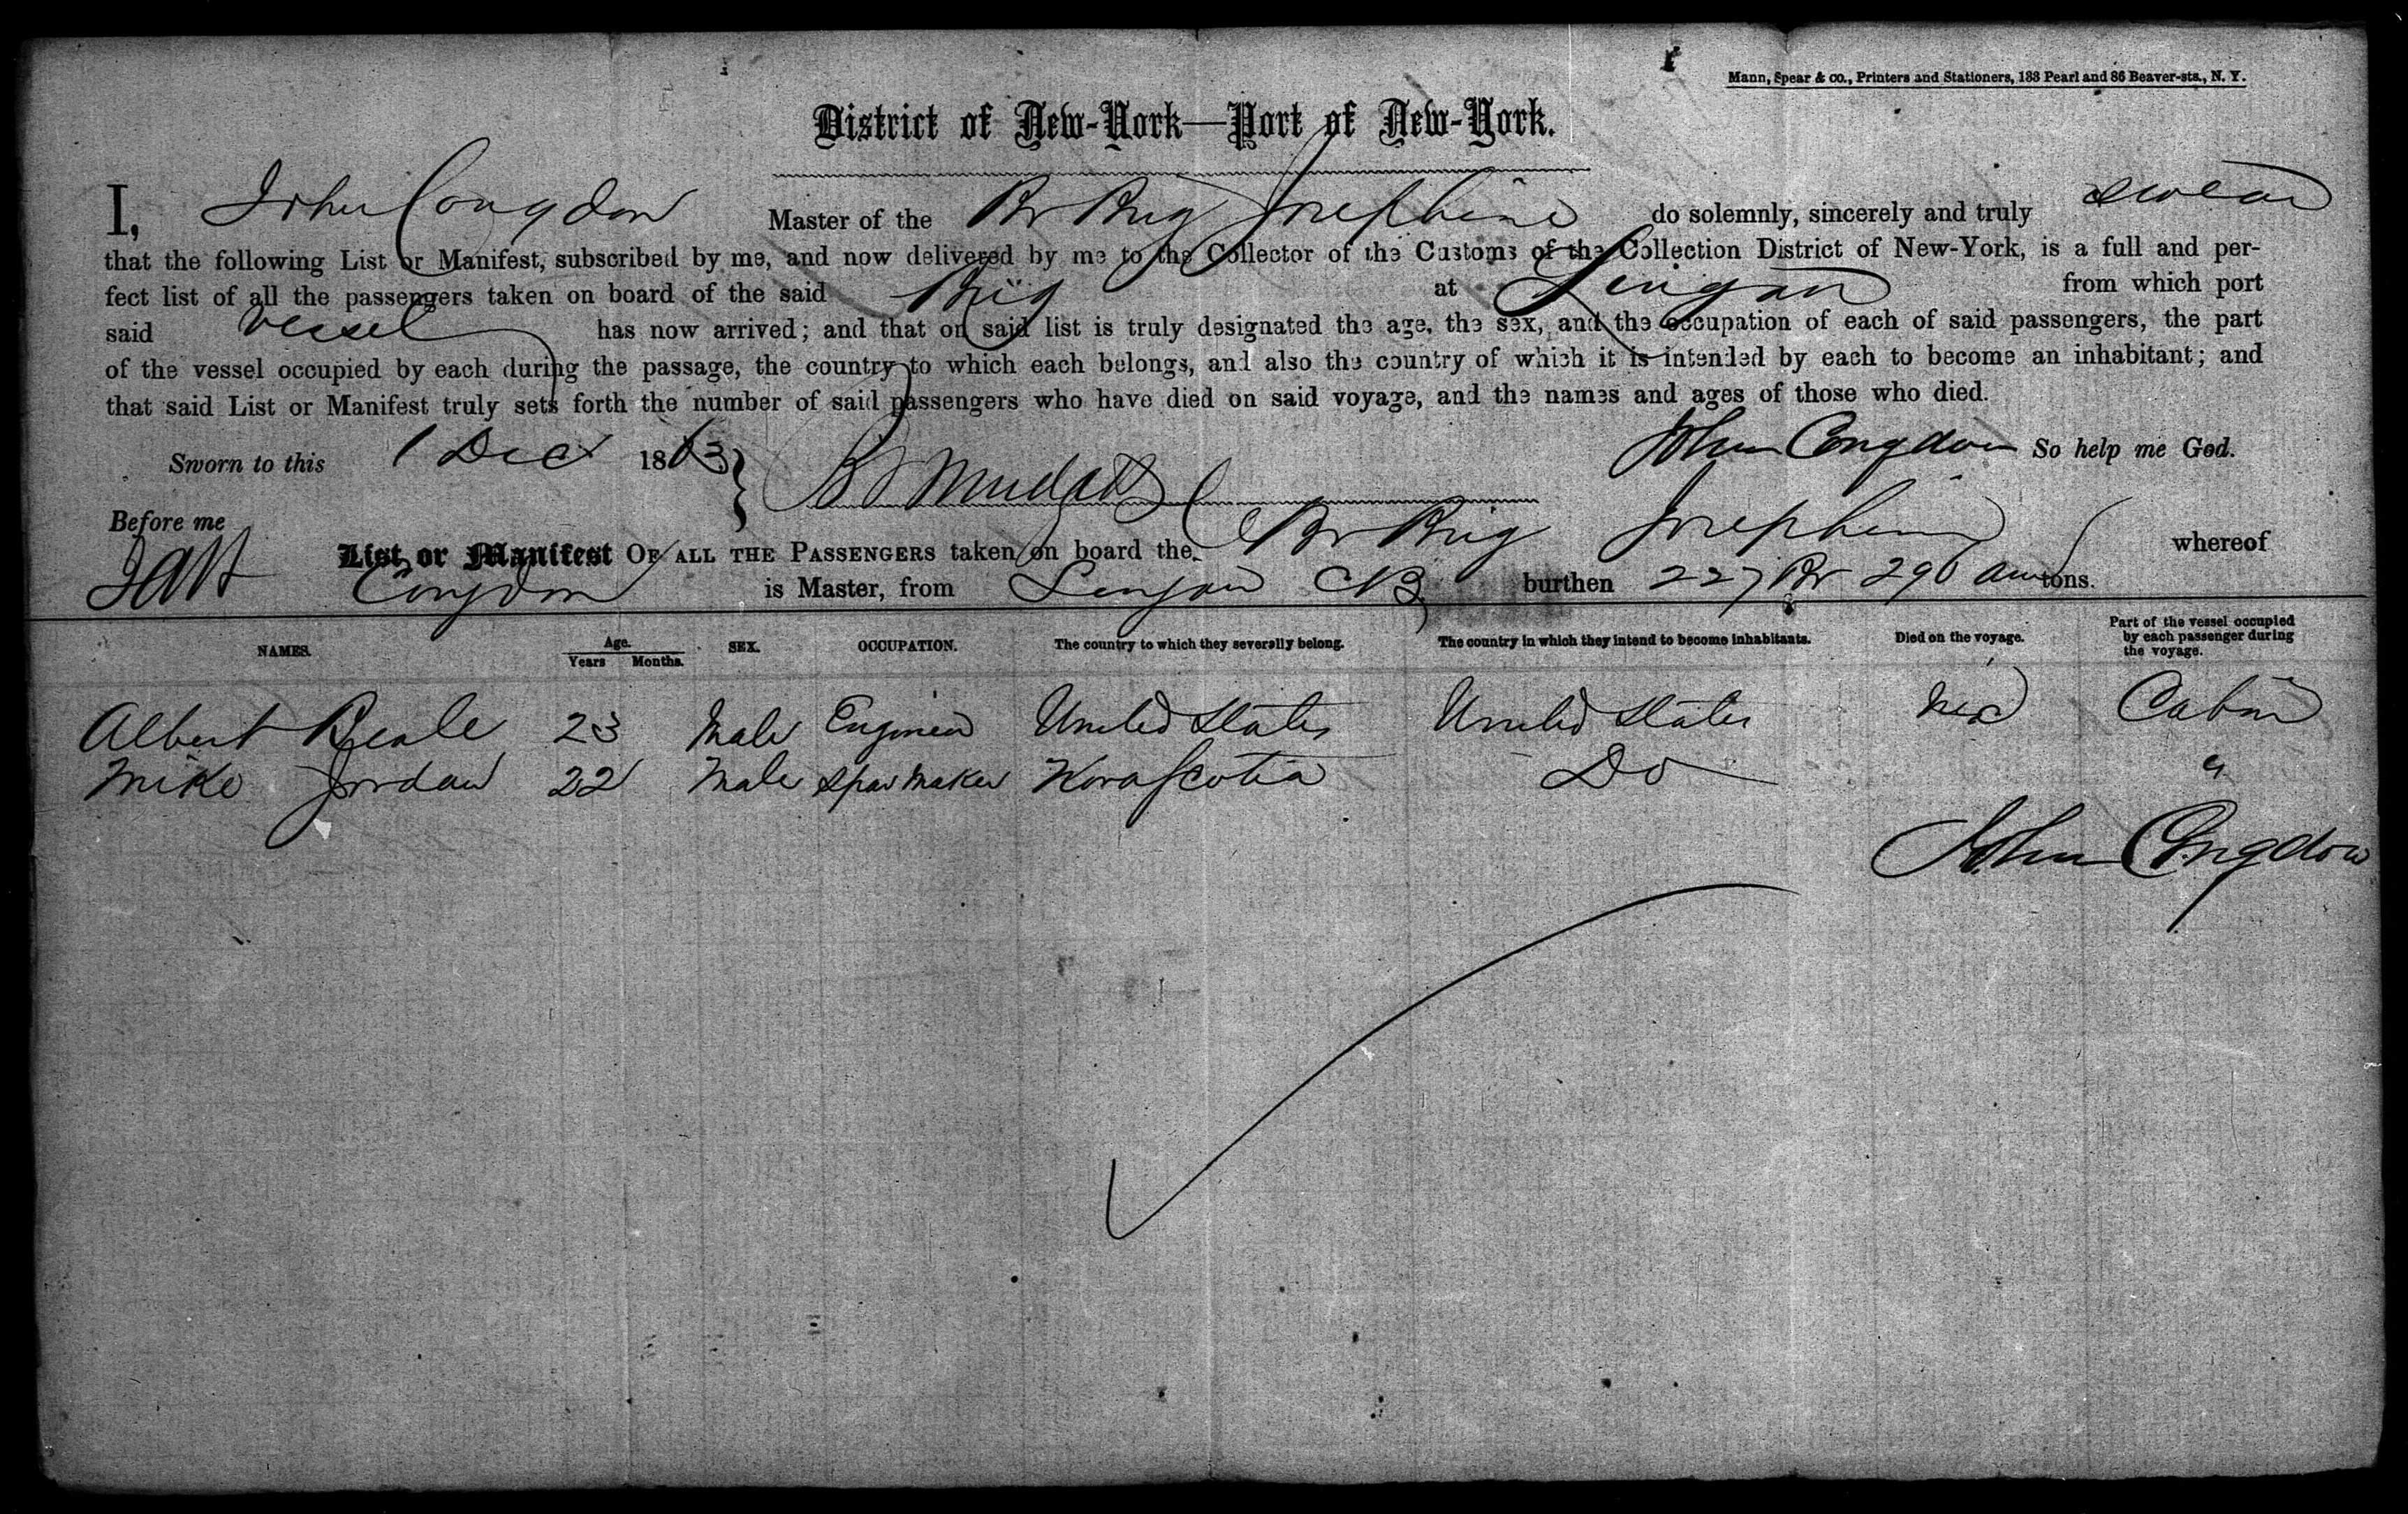 Mann, Spear & co., Printers and Stationers, 133 Pearl and 86 Beaver-sts., N. Y.
District of New-York—Port of New-York.
I, John Congdon Master of the Br Brig Josephine do solemnly, sincerely and truly swear
that the following List or Manifest, subscribed by me, and now delivered by me to the Collector of the Customs of the Collection District of New-York, is a full and per-
fect list of all the passengers taken on board of the said Brig at Lingan from which port
said Vessel has now arrived; and that on said list is truly designated the age, the sex, and the occupation of each of said passengers, the part
of the vessel occupied by each during the passage, the country to which each belongs, and also the country of which it is intended by each to become an inhabitant; and
that said List or Manifest truly sets forth the number of said passengers who have died on said voyage, and the names and ages of those who died.
Sworn to this 1 Dec 1863 John Congdon So help me God.
Before me
List or Manifest OF ALL THE PASSENGERS taken on board the Br Brig Josephine whereof
Congdon is Master, from Lingan CB burthen 227 Br 296 Am tons.
NAMES. Age. Years Months. SEX. OCCUPATION. The country to which they severally belong. The country in which they intend to become inhabitants. Died on the voyage. Part of the vessel occupied by each passenger during the voyage.
Albert Beale 23 Male Engineer United States United States Cabin
Mike Jordan 22 Male Spar Maker Nova Scotia Do "
John Congdon